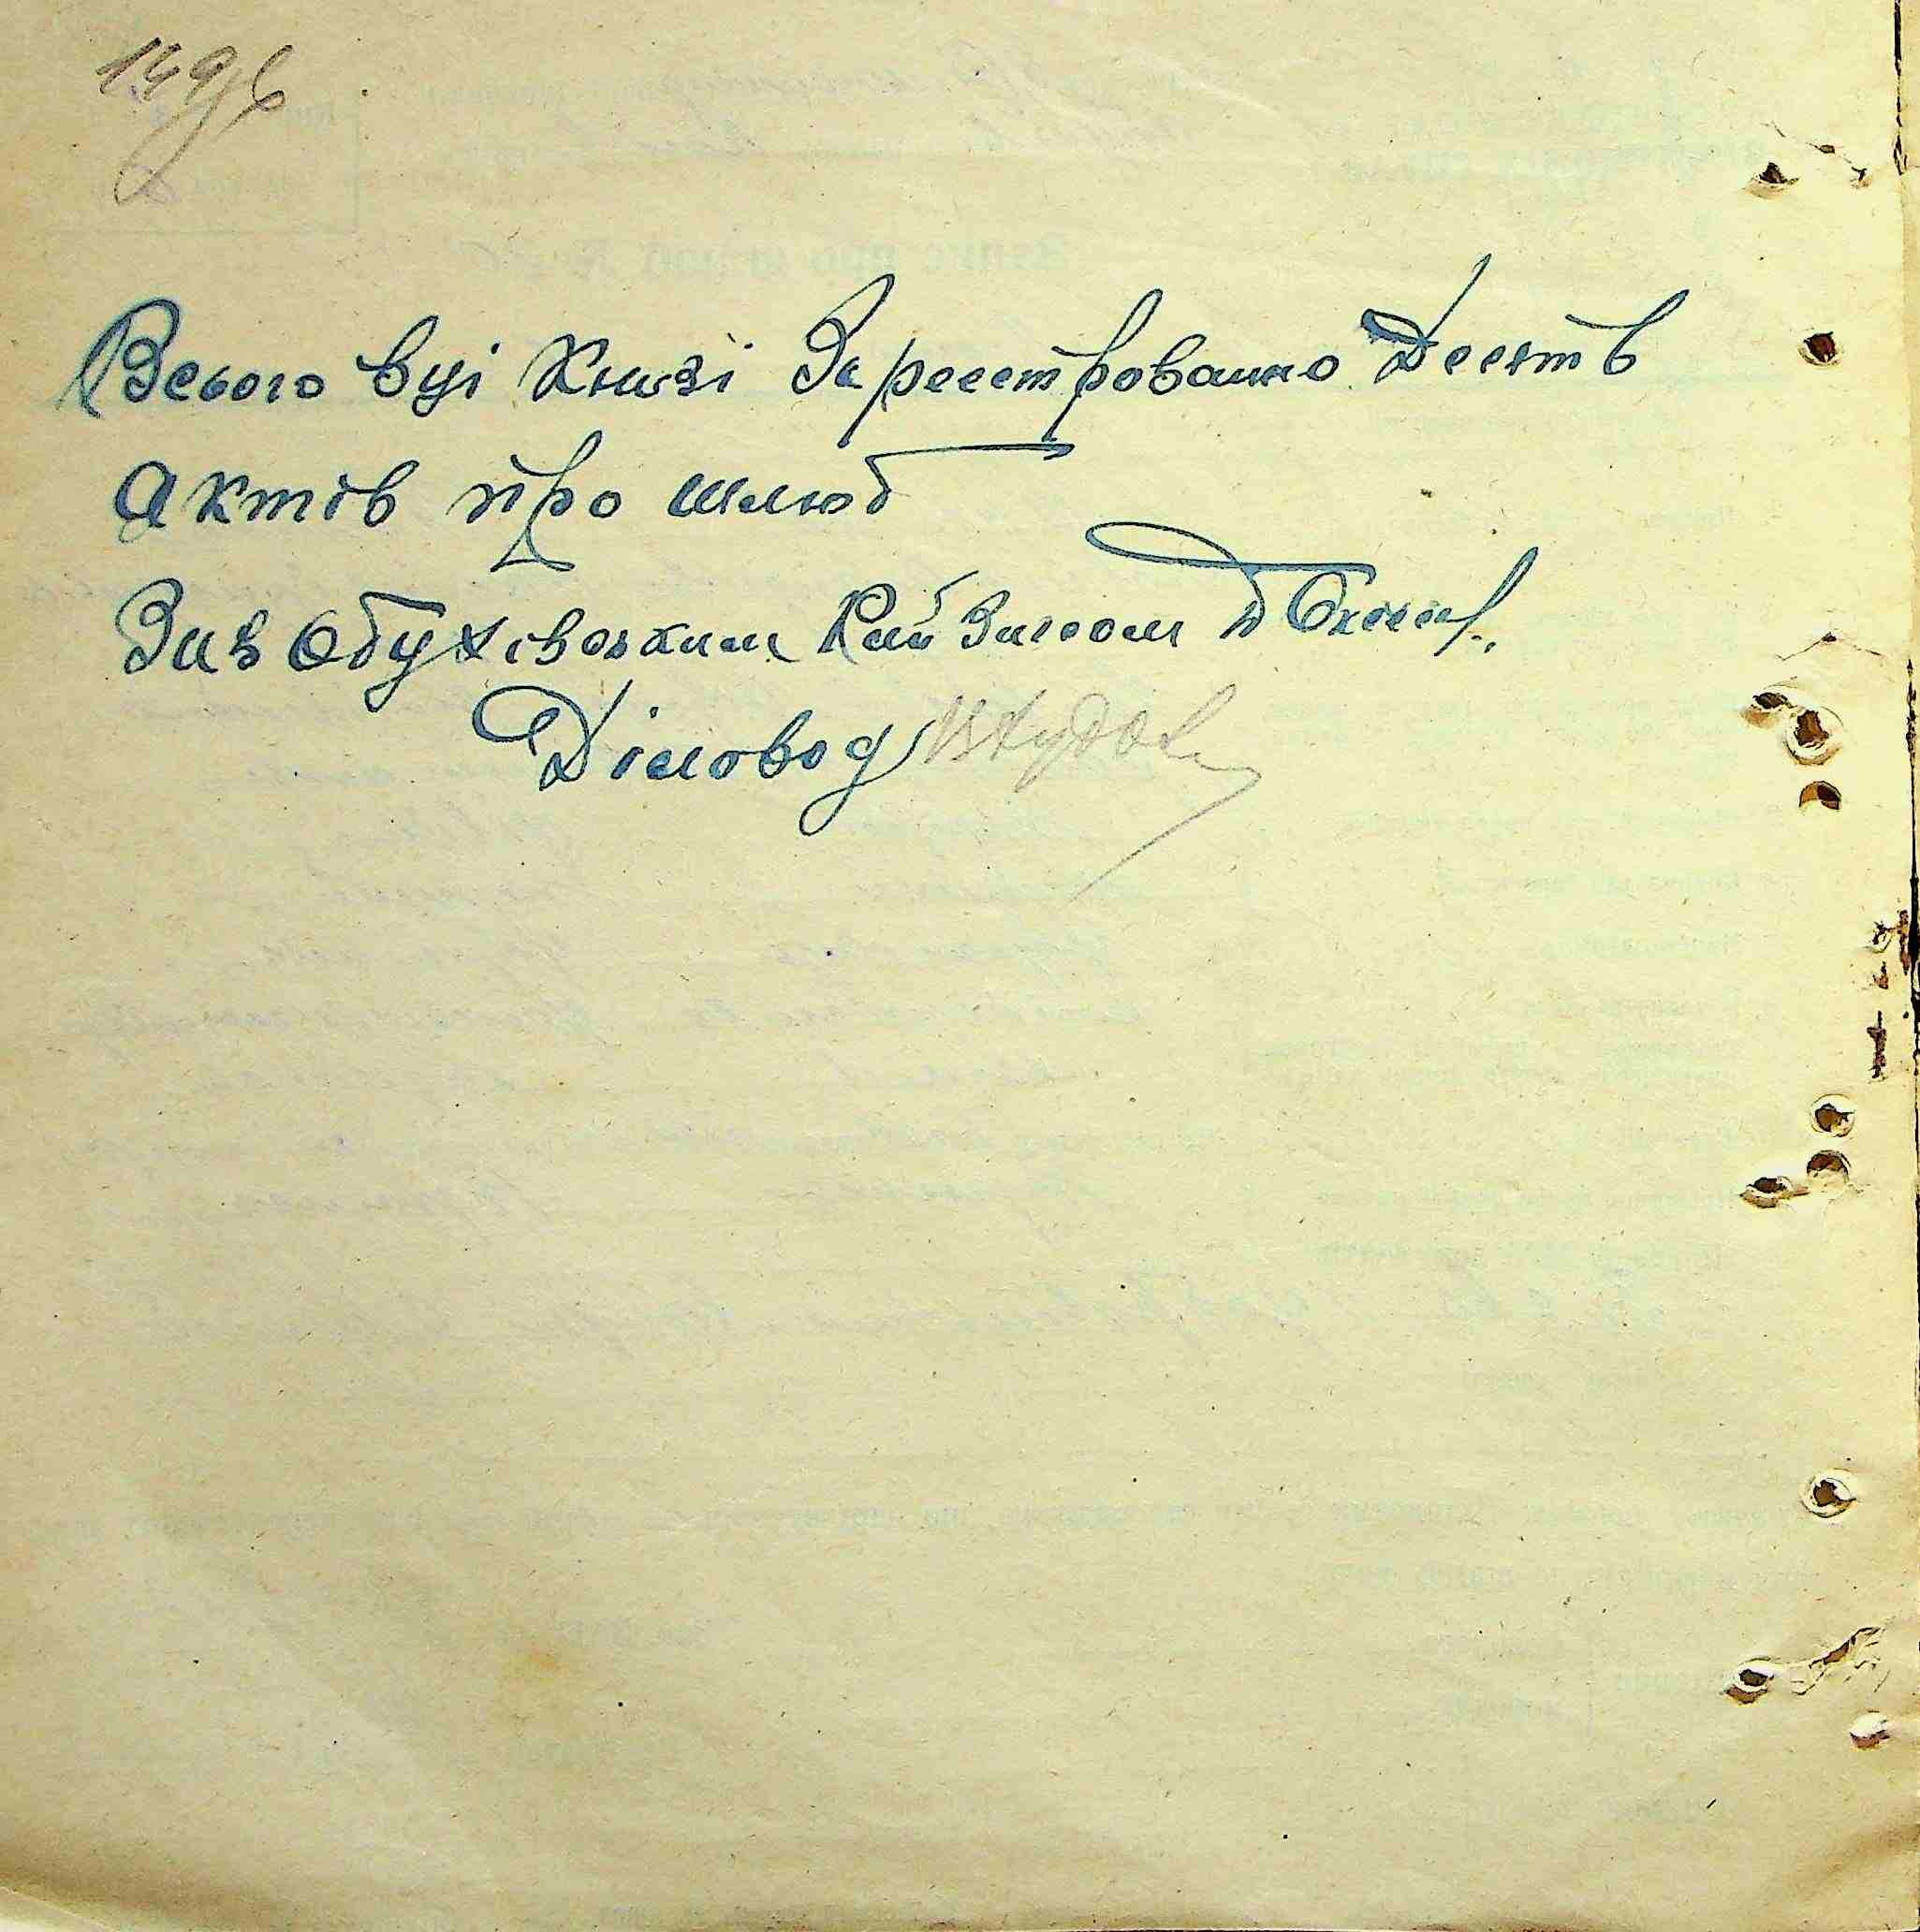 Всього вці Книзі Зареестрованно Десять
Актів про шлюб
Зав Обухівським Рай Загсом
Діловод